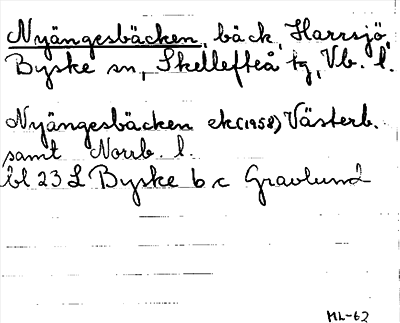 Nyängesbäcken, bäck, Harrsjö,
Byske sn, Skellefteå tg, Vb. l.
Nyängesbäcken ek(1958) Västerb.
samt Norrb. l.
bl 23 L Byske b c Gravlund
ML-62